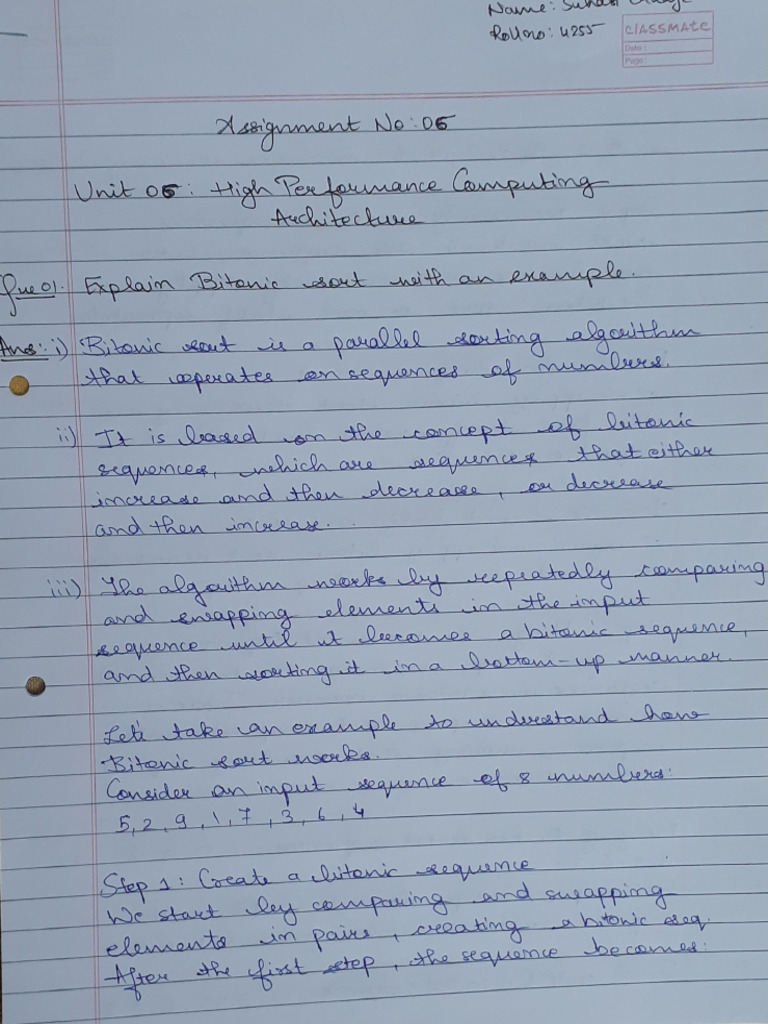 Name: Suhas
Roll no: 4255
CLASSMATE
Date:
Page:
Assignment No: 05
Unit 05: High Performance Computing
Architecture
Que 01. Explain Bitonic sort with an example.
Ans: i) Bitonic sort is a parallel sorting algorithm
that operates on sequences of numbers.
ii) It is based on the concept of bitonic
sequences, which are sequences that either
increase and then decrease, or decrease
and then increase.
iii) The algorithm works by repeatedly comparing
and swapping elements in the input
sequence until it becomes a bitonic sequence,
and then sorting it in a bottom-up manner.
Let's take an example to understand how
Bitonic sort works.
Consider an input sequence of 8 numbers:
5, 2, 9, 1, 7, 3, 6, 4
Step 1: Create a bitonic sequence
We start by comparing and swapping
elements in pairs, creating a bitonic seq.
After the first step, the sequence becomes: